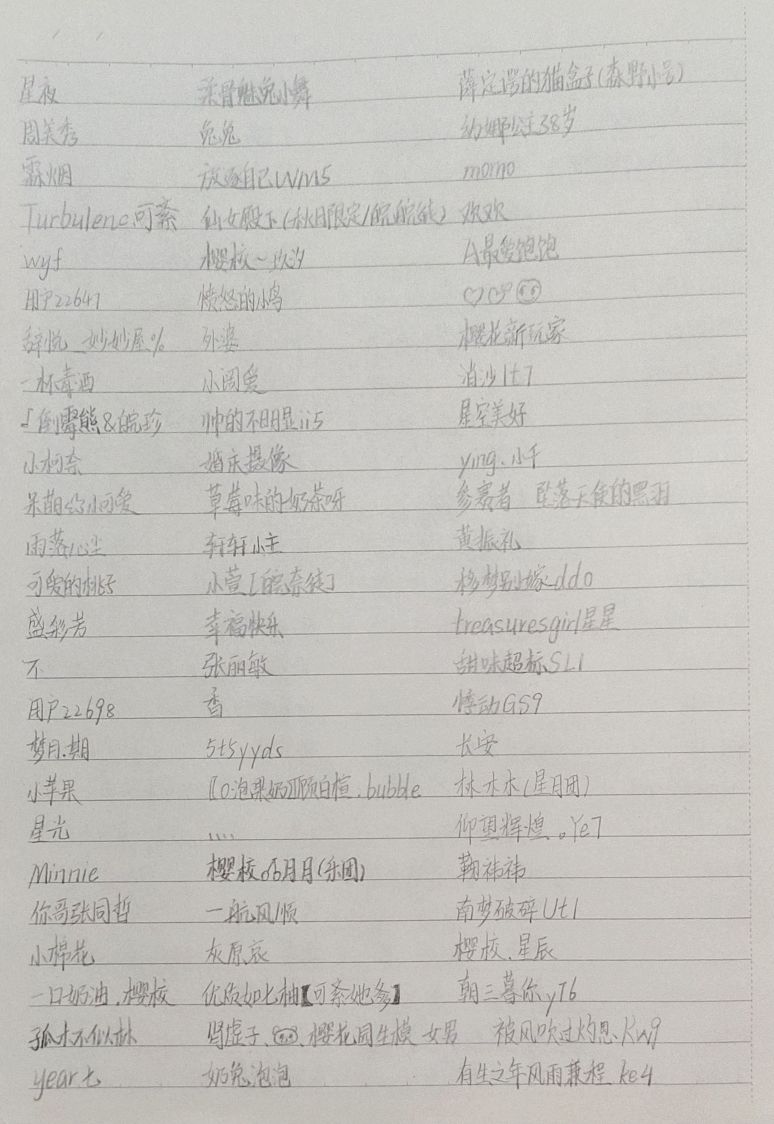 星夜 柔骨魅兔小舞 薛定谔的猫盒子(森野小号)
周美秀 兔兔 幼娜公主38岁
霖烟 放逐自己WM5 momo
Turbulenc可柰 仙女殿下(秋月限定/皖皖徒) 欢欢
wyf 樱校~玖汐 A最爱饱饱
用户22647 愤怒的小鸟
辞悦_妙妙屋% 外婆 樱花新玩家
一杯毒酒 小阔爱 消沙1t7
帅的不明显ii5 星空美好
小柯奈 婚庆摄像 ying.小千
呆萌的小可爱 草莓味的奶茶呀 参赛者 坠落天使的黑羽
雨落心尘 轩轩小主 黄振礼
可爱的桃子 小萱[皖奈徒] 移梦别嫁ddo
盛彩芳 幸福快乐 treasuresgirl星星
不 张丽敏 甜味超标SL1
用户22698 香 悸动GS9
梦月.期 5t5yyds 长安
小苹果 bubble 林木木(星月团)
星光 .... 仰望辉煌。Ye7
Minnie 樱校 月月(乐团) 鞠祎祎
你哥张同哲 一航风顺 南梦破碎Ut1
小棉花 灰原哀 樱校.星辰
一口奶油.樱校 优质如七柚【可柰她爹】 朝三暮你yT6
孤木不似林 肾虚子. .樱花同生模 女男 被风吹过灼思.Kw9
year七 奶兔泡泡 有生之年风雨兼程 ke4